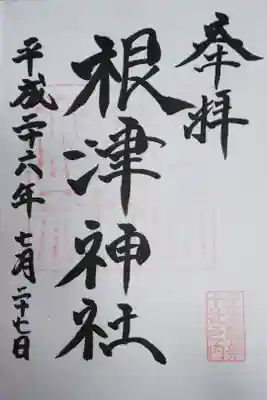 奉拝
根津神社
平成二十六年七月二十七日